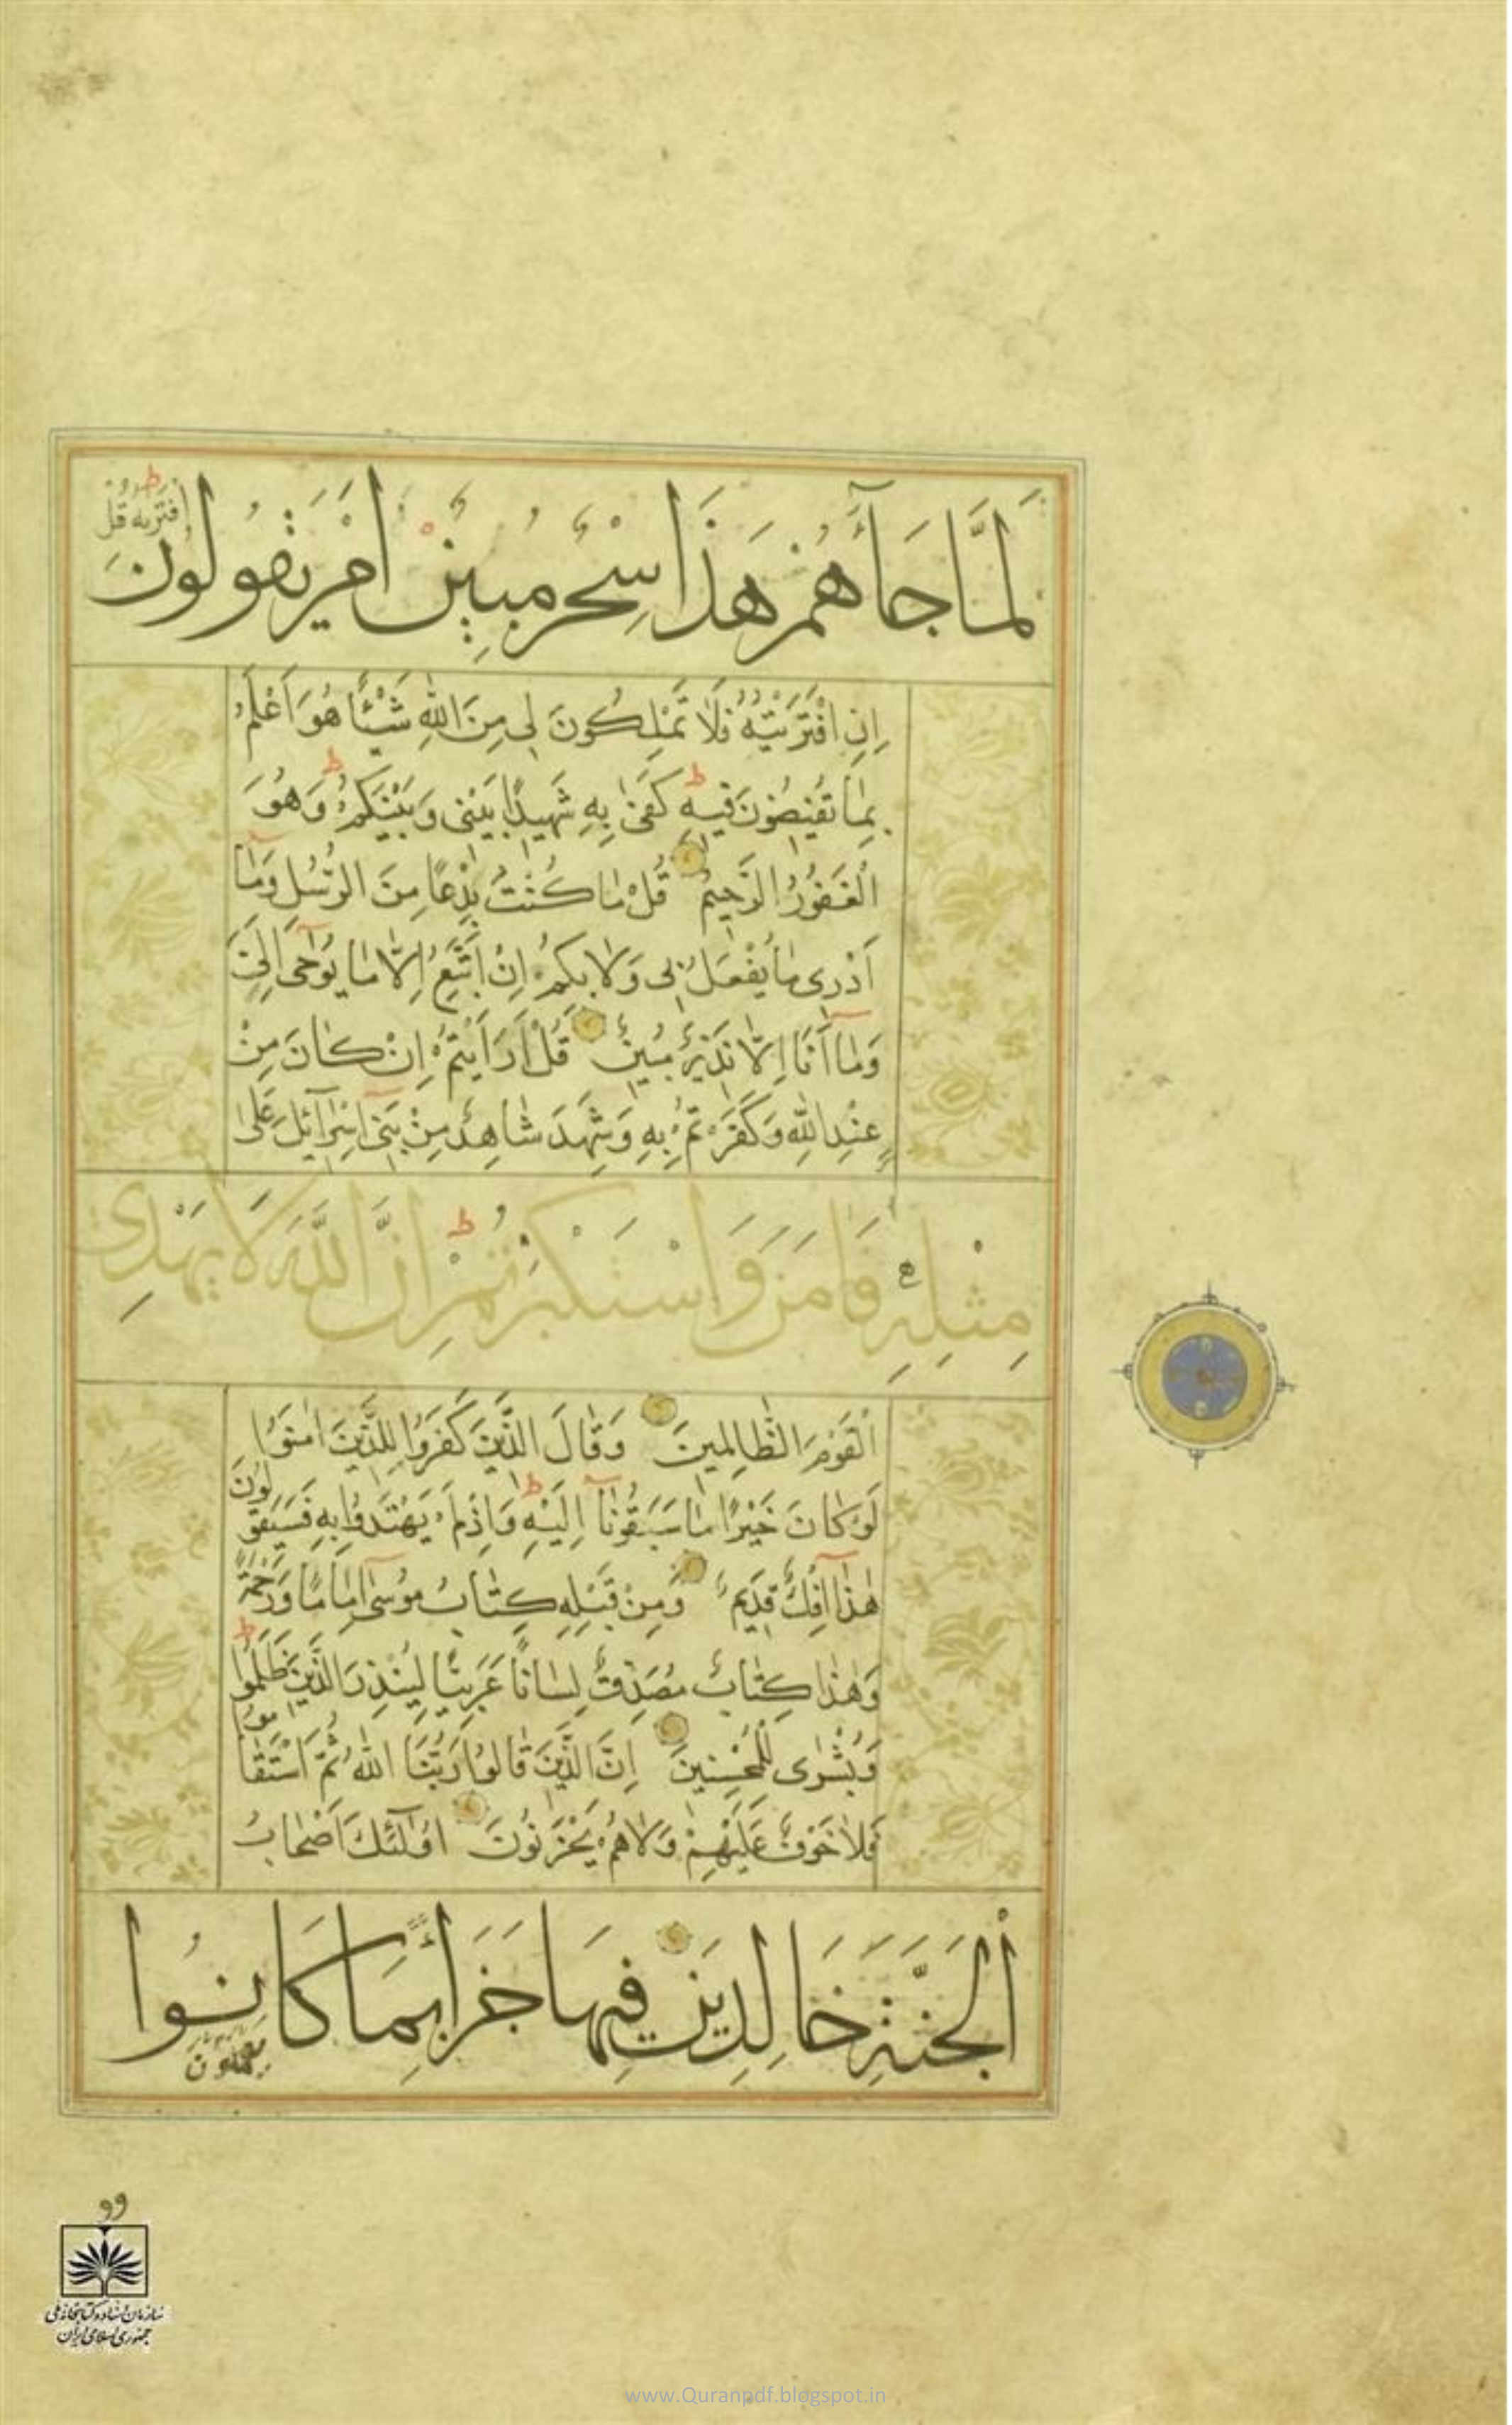 لَمَّا جَآءَهُمْ هَذَا سِحْرٌ مُبِينٌ اَمْ يَقُولُونَ
اِفْتَرَیهُ قُلْ
اِنِ افْتَرَيْتُهُ فَلَا تَمْلِكُونَ لِي مِنَ اللّٰهِ شَيْئًا هُوَ اَعْلَمُ
بِمَا تُفِيضُونَ فِيهِ كَفَىٰ بِهِ شَهِيدًا بَيْنِي وَبَيْنَكُمْ وَهُوَ
الْغَفُورُ الرَّحِيمُ قُلْ مَا كُنْتُ بِدْعًا مِنَ الرُّسُلِ وَمَآ
اَدْرِى مَا يُفْعَلُ بِى وَلَا بِكُمْ اِنْ اَتَّبِعُ اِلَّا مَا يُوحَىٰ اِلَيَّ
وَمَآ اَنَا اِلَّا نَذِيرٌ مُبِينٌ قُلْ اَرَاَيْتُمْ اِنْ كَانَ مِنْ
عِنْدِ اللّٰهِ وَكَفَرْتُمْ بِهِ وَشَهِدَ شَاهِدٌ مِنْ بَنِىٓ اِسْرَآئِلَ عَلَىٰ
مِثْلِهِ فَاٰمَنَ وَاسْتَكْبَرْتُمْ اِنَّ اللَّهَ لَا يَهْدِى
الْقَوْمَ الظَّالِمِينَ وَقَالَ الَّذِينَ كَفَرُوا لِلَّذِينَ اٰمَنُوا
لَوْ كَانَ خَيْرًا مَا سَبَقُونَآ اِلَيْهِ وَاِذْ لَمْ يَهْتَدُوا بِهِ فَسَيَقُولُونَ
هٰذَآ اِفْكٌ قَدِيمٌ وَمِنْ قَبْلِهِ كِتَابُ مُوسَىٰٓ اِمَامًا وَرَحْمَةً
وَهٰذَا كِتَابٌ مُصَدِّقٌ لِسَانًا عَرَبِيًّا لِيُنْذِرَ الَّذِينَ ظَلَمُوا
وَبُشْرَىٰ لِلْمُحْسِنِينَ اِنَّ الَّذِينَ قَالُوا رَبُّنَا اللّٰهُ ثُمَّ اسْتَقَامُوا
فَلَا خَوْفٌ عَلَيْهِمْ وَلَا هُمْ يَحْزَنُونَ اُولٰٓئِكَ اَصْحَابُ
اْلجَنَّةِ خَالِدِينَ فِيهَا جَزَآءً بِمَا كَانُوا
يَعْمَلُونَ
سازمان اسناد و کتابخانه ملی
جمهوری اسلامی ایران
www.Quranpdf.blogspot.in